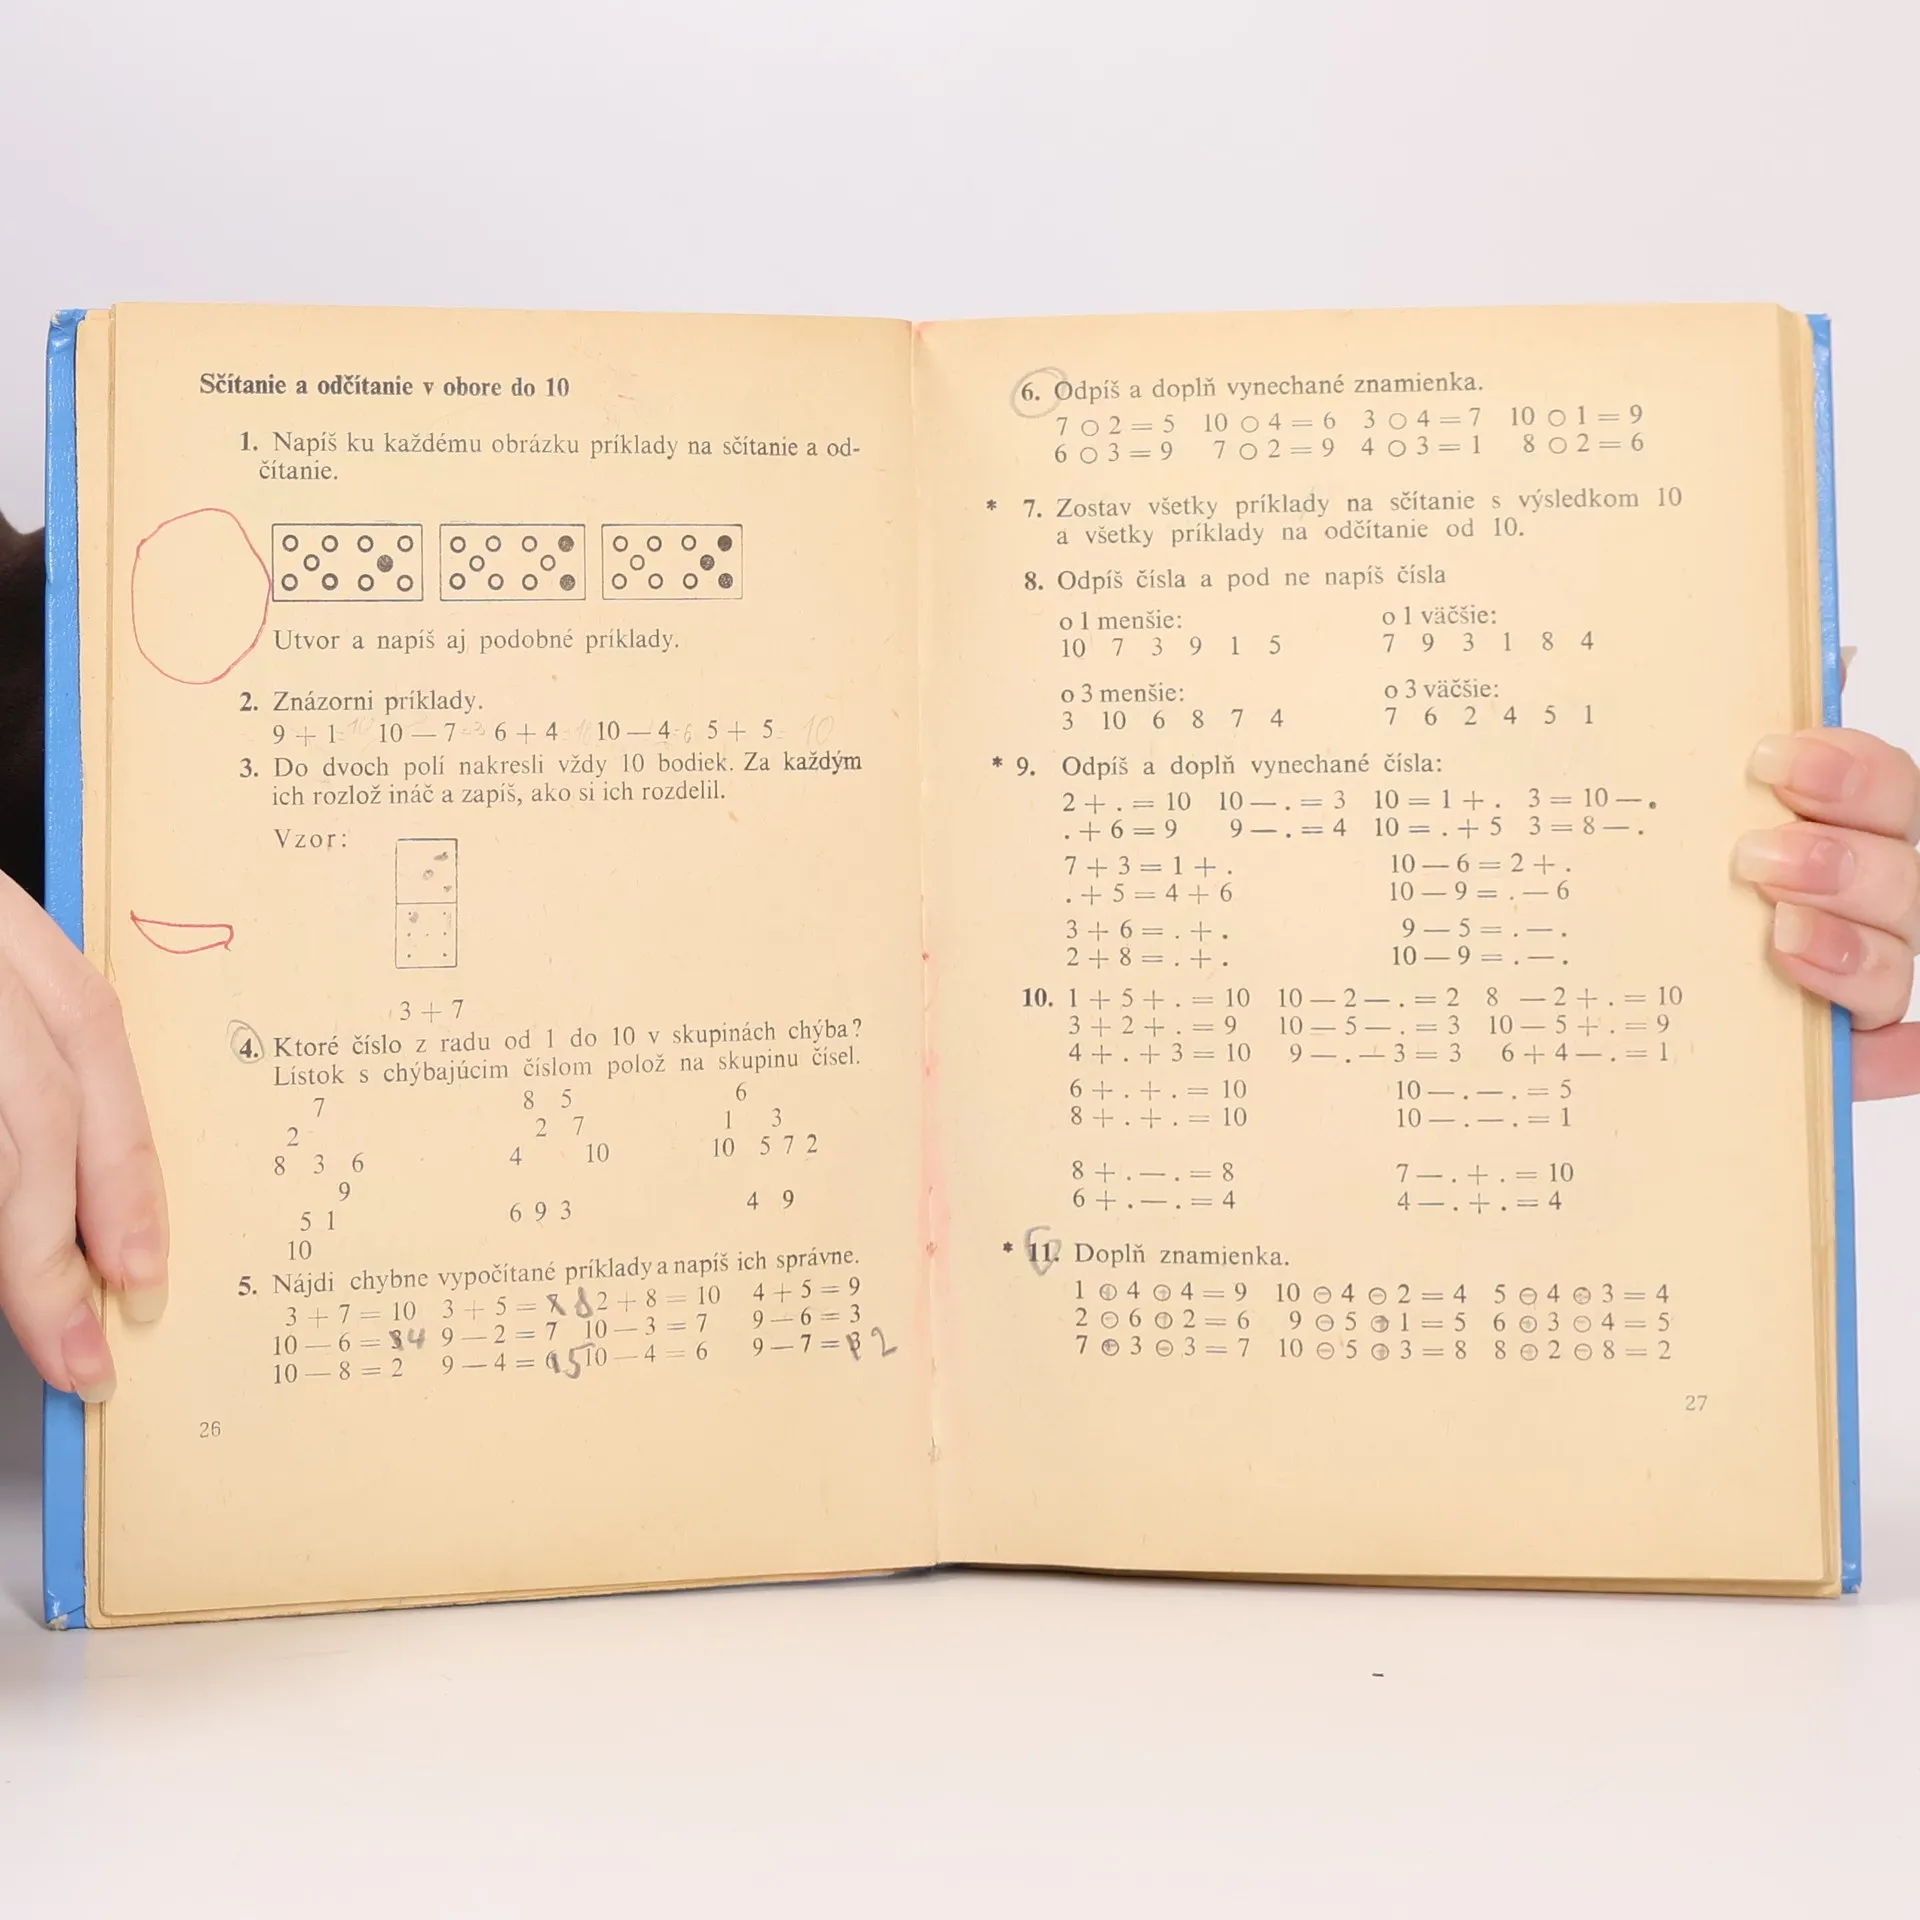 Sčítanie a odčítanie v obore do 10
1. Napíš ku každému obrázku príklady na sčítanie a od-
čítanie.
Utvor a napíš aj podobné príklady.
2. Znázorni príklady.
9 + 1 10 — 7 = 3 6 + 4 10 — 4 = 6 5 + 5 = 10
3. Do dvoch polí nakresli vždy 10 bodiek. Za každým
ich rozlož ináč a zapíš, ako si ich rozdelil.
Vzor:
3 + 7
4. Ktoré číslo z radu od 1 do 10 v skupinách chýba?
Lístok s chýbajúcim číslom polož na skupinu čísel.
7 8 5 6
2 2 7 1 3
8 3 6 4 10 10 5 7 2
9
5 1 6 9 3 4 9
10
5. Nájdi chybne vypočítané príklady a napíš ich správne.
3 + 7 = 10 3 + 5 = 8 2 + 8 = 10 4 + 5 = 9
10 — 6 = 3 4 9 — 2 = 7 10 — 3 = 7 9 — 6 = 3
10 — 8 = 2 9 — 4 = 5 10 — 4 = 6 9 — 7 = 2
26
6. Odpíš a doplň vynechané znamienka.
7 ○ 2 = 5 10 ○ 4 = 6 3 ○ 4 = 7 10 ○ 1 = 9
6 ○ 3 = 9 7 ○ 2 = 9 4 ○ 3 = 1 8 ○ 2 = 6
* 7. Zostav všetky príklady na sčítanie s výsledkom 10
a všetky príklady na odčítanie od 10.
8. Odpíš čísla a pod ne napíš čísla
o 1 menšie: o 1 väčšie:
10 7 3 9 1 5 7 9 3 1 8 4
o 3 menšie: o 3 väčšie:
3 10 6 8 7 4 7 6 2 4 5 1
* 9. Odpíš a doplň vynechané čísla:
2 + . = 10 10 — . = 3 10 = 1 + . 3 = 10 — .
. + 6 = 9 9 — . = 4 10 = . + 5 3 = 8 — .
7 + 3 = 1 + . 10 — 6 = 2 + .
. + 5 = 4 + 6 10 — 9 = . — 6
3 + 6 = . + . 9 — 5 = . — .
2 + 8 = . + . 10 — 9 = . — .
10. 1 + 5 + . = 10 10 — 2 — . = 2 8 — 2 + . = 10
3 + 2 + . = 9 10 — 5 — . = 3 10 — 5 + . = 9
4 + . + 3 = 10 9 — . — 3 = 3 6 + 4 — . = 1
6 + . + . = 10 10 — . — . = 5
8 + . + . = 10 10 — . — . = 1
8 + . — . = 8 7 — . + . = 10
6 + . — . = 4 4 — . + . = 4
* 11. Doplň znamienka.
1 ⊕ 4 ⊕ 4 = 9 10 ⊖ 4 ⊖ 2 = 4 5 ⊖ 4 ⊕ 3 = 4
2 ⊖ 6 ⊕ 2 = 6 9 ⊖ 5 ⊕ 1 = 5 6 ⊕ 3 ⊖ 4 = 5
7 ⊕ 3 ⊖ 3 = 7 10 ⊖ 5 ⊕ 3 = 8 8 ⊕ 2 ⊖ 8 = 2
27